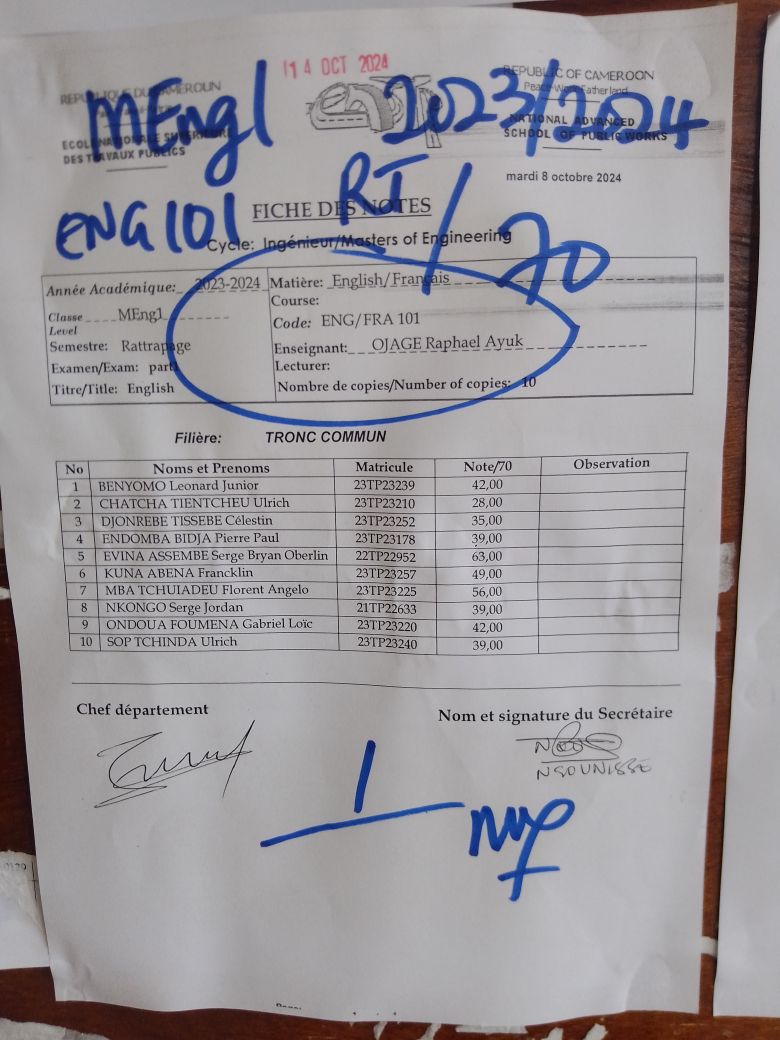 14 OCT 2024
REPUBLIQUE DU CAMEROUN
REPUBLIC OF CAMEROON
Peace-Work-Fatherland
MEng1
2023/2024
ECOLE NATIONALE SUPERIEURE
DES TRAVAUX PUBLICS
NATIONAL ADVANCED
SCHOOL OF PUBLIC WORKS
mardi 8 octobre 2024
RT
/70
ENG 101
FICHE DES NOTES
Cycle: Ingénieur/Masters of Engineering
Année Académique: 2023-2024
Classe MEng1
Level
Semestre: Rattrapage
Examen/Exam: part1
Titre/Title: English
Matière: English/Français
Course:
Code: ENG/FRA 101
Enseignant: OJAGE Raphael Ayuk
Lecturer:
Nombre de copies/Number of copies: 10
Filière: TRONC COMMUN
No Noms et Prenoms Matricule Note/70 Observation
1 BENYOMO Leonard Junior 23TP23239 42,00
2 CHATCHA TIENTCHEU Ulrich 23TP23210 28,00
3 DJONREBE TISSEBE Célestin 23TP23252 35,00
4 ENDOMBA BIDJA Pierre Paul 23TP23178 39,00
5 EVINA ASSEMBE Serge Bryan Oberlin 22TP22952 63,00
6 KUNA ABENA Francklin 23TP23257 49,00
7 MBA TCHUIADEU Florent Angelo 23TP23225 56,00
8 NKONGO Serge Jordan 21TP22633 39,00
9 ONDOUA FOUMENA Gabriel Loïc 23TP23220 42,00
10 SOP TCHINDA Ulrich 23TP23240 39,00
Chef département
Nom et signature du Secrétaire
NGOUNISSE
1